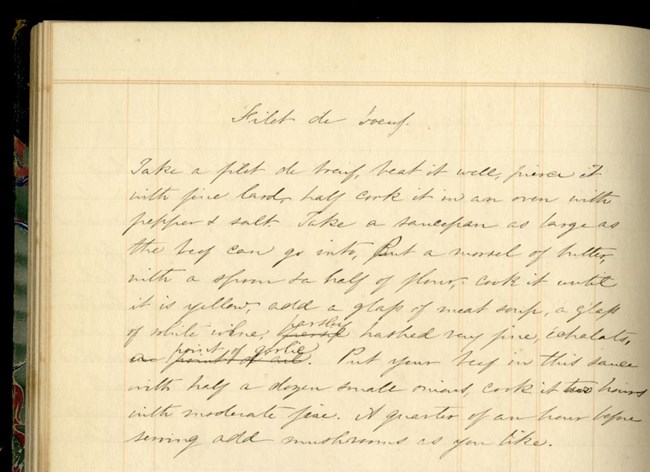 Filet de boeuf.
Take a filet de boeuf, beat it well, pierce it
with fine lard, half cook it in an oven with
pepper & salt. Take a saucepan as large as
the beef can go into, Put a morsel of butter,
with a spoon & a half of flour, cook it until
it is yellow, add a glass of meat soup, a glass
of white wine, parsley hashed very fine, echalots,
point of garlic. Put your beef in this sauce
with half a dozen small onions, cook it two hours
with moderate fire. A quarter of an hour before
serving add mushrooms as you like.